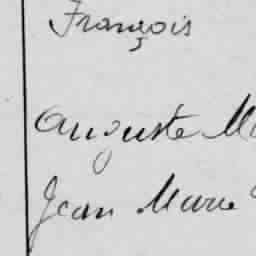 François
Auguste Ma
Jean Marie